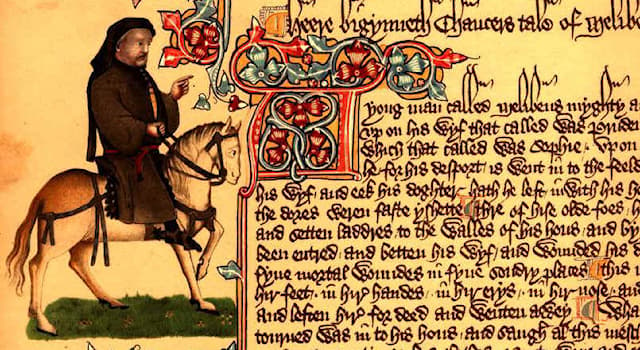 Heere bigynneth Chaucers tale of Melibe
A yong man called Melibeus myghty a
up on his wyf that called was Prude
which that called was Sophie / Upon
he for his desport is went in to the feeld
his wyf and eek his doghter hath he left inwith his h
the dores weren faste yshette / thre of hise olde foes h
and setten laddres to the walles of his hous and by
been entred and betten his wyf and wounded his
fyue mortal woundes in fyue sondry places / this i
hir feet / in hir handes / in hir erys / in hir nose / and
and leften hir for deed and wenten awey / Wha
tourned was in to his hous and saugh al this mesc